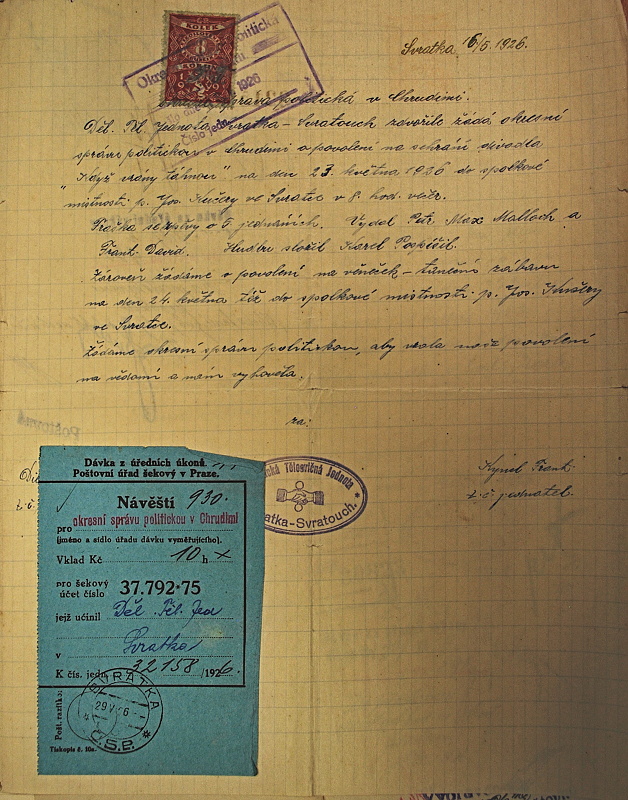 Svratka 16/5. 1926.
správa politická v Chrudimi.
Děl. Těl. Jednota Svratka – Svratouch zdvořile žádá okresní
správu politickou v Chrudimi o povolení na sehrání divadla
"Když vrány táhnou" na den 23. května 1926 do spolkové
místnosti p. Jos. Kučery ve Svratce v 8. hod. več.
Fraška se zpěvy o 6 jednáních. Vydal Petr Max Malloch a
Frant. David. Hudbu složil Karel Pospíšil.
Zároveň žádáme o povolení na věneček – taneční zábavu
na den 24. května též do spolkové místnosti p. Jos. Kučery
ve Svratce.
Žádáme okresní správu politickou, aby vzala naše povolení
na vědomí a nám vyhověla.
za:
Tělocvičná Jednota
Svratka-Svratouch.
Frant.
t. č. jednatel.
KOLEK
8
politická
1926
Číslo jedn.
Dávka z úředních úkonů.
Poštovní úřad šekový v Praze.
Návěští 930.
pro okresní správu politickou v Chrudimi
(jméno a sídlo úřadu dávku vyměřujícího).
Vklad Kč 10 h x
pro šekový
účet číslo 37.792·75
jejž učinil Děl. Těl. Jed
v Svratka
K čís. jedn. 32158/1926.
Pošt. razítko:
SVRATKA
29 V 26
Č.S.P.
Tiskopis č. 10a.